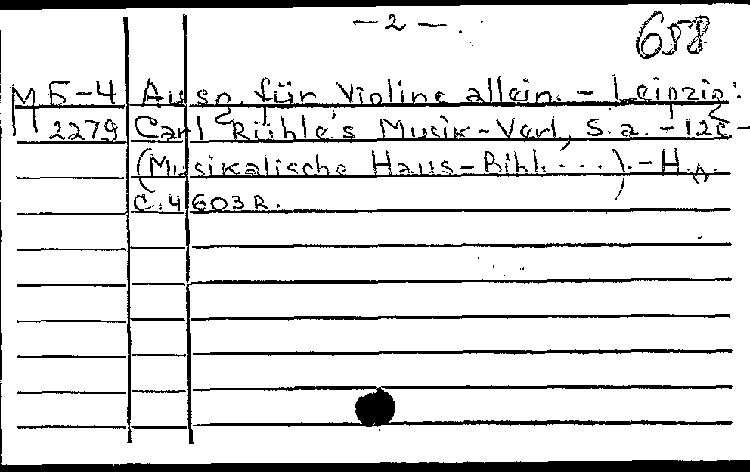 — 2 —.
658
М Б-4 Ausg. für Violine allein. - Leipzig:
2279 Carl Rühle's Musik-Verl, S.a. - 12c -
(Musikalische Haus-Bibl. ...). - Н.д.
C.4603R.